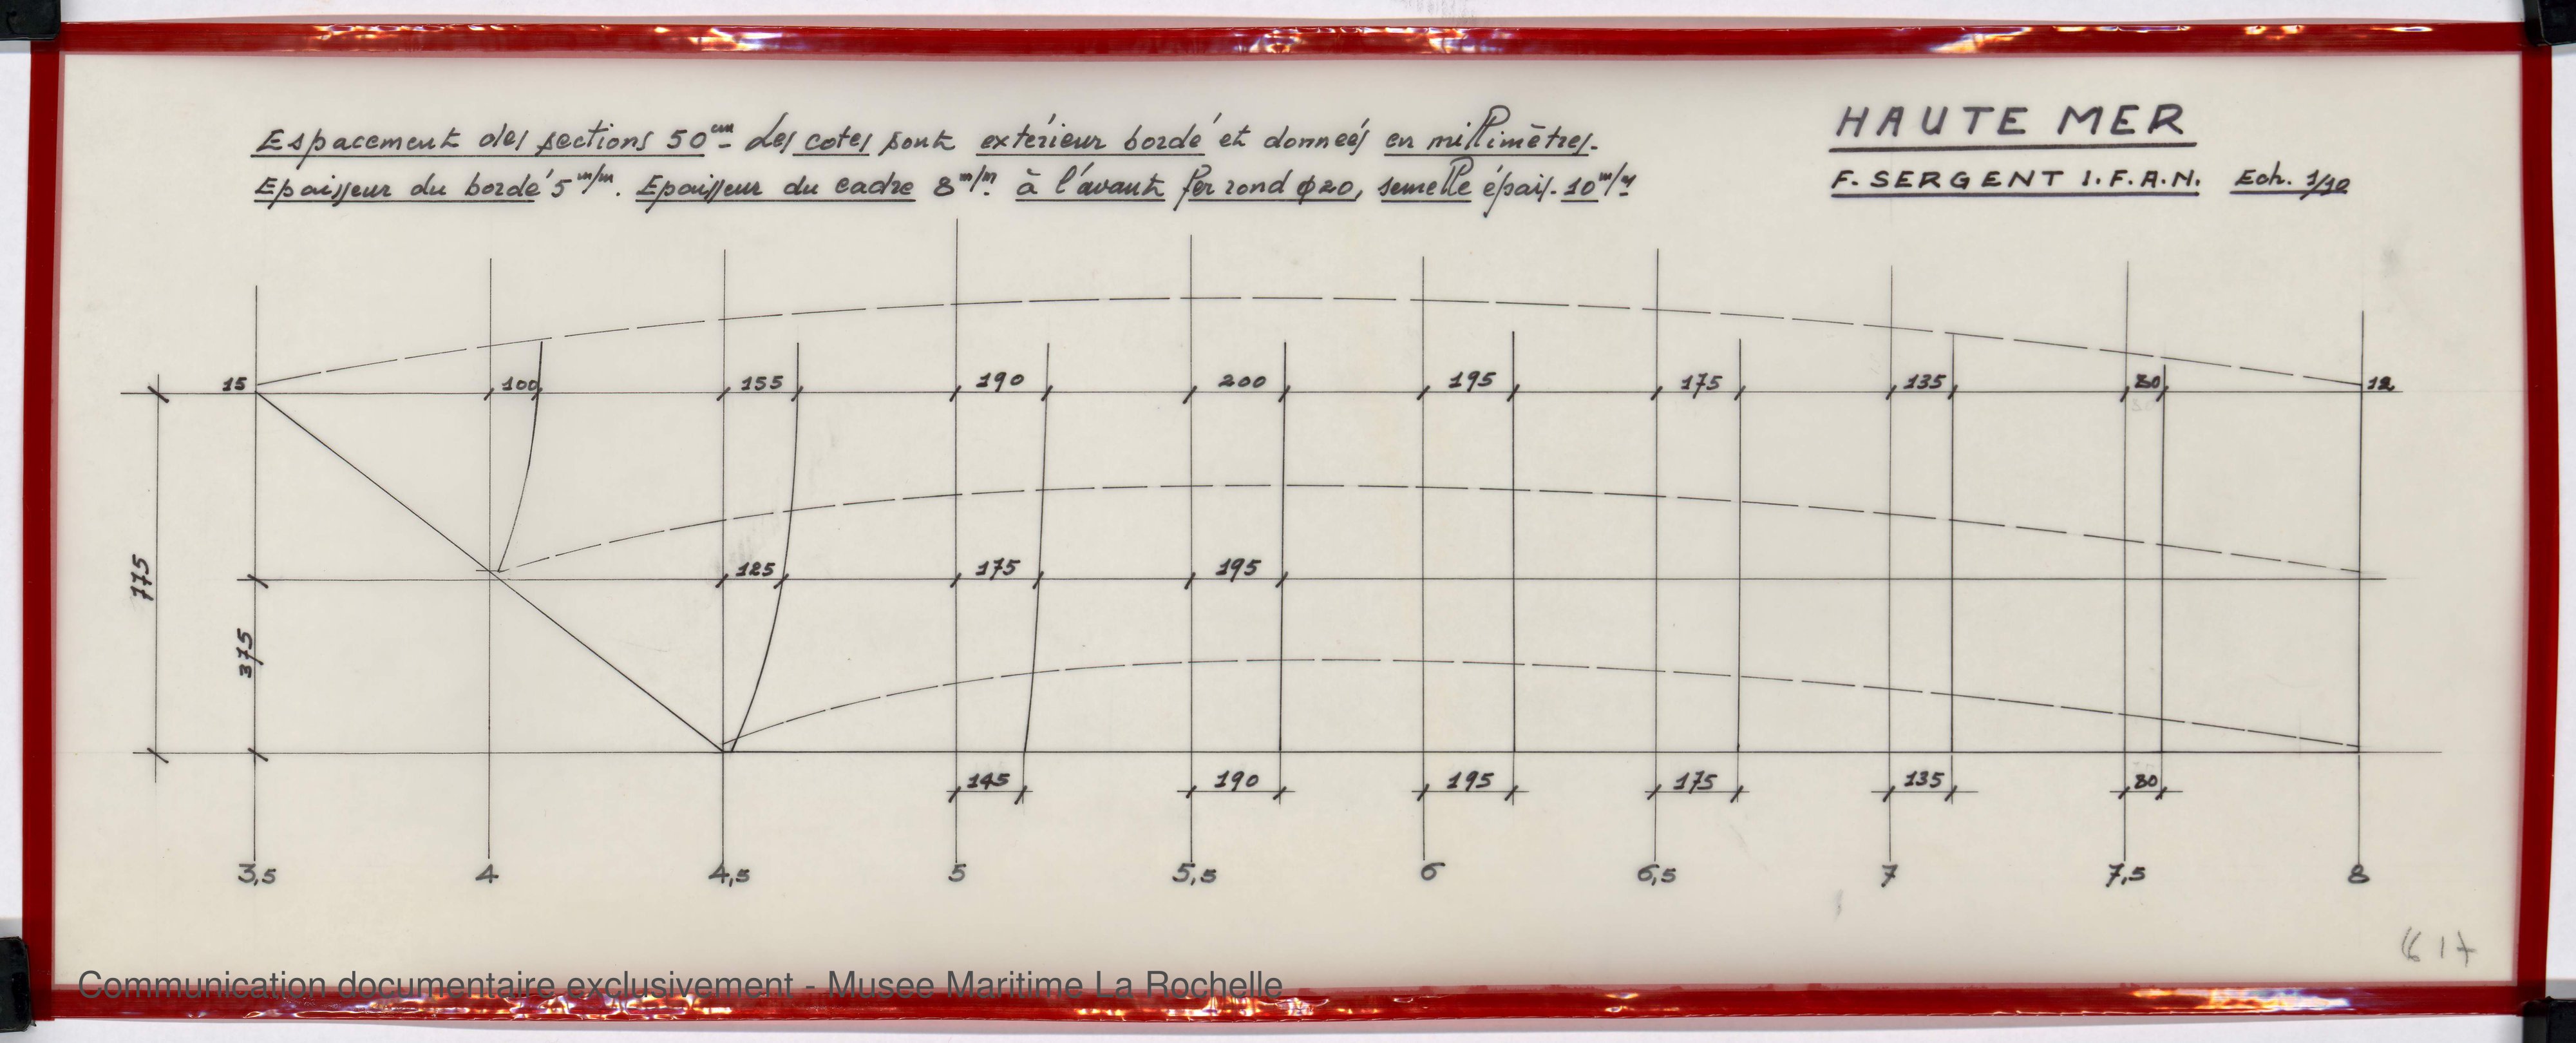 HAUTE MER
Espacement des sections 50 cm_ les cotes sont extérieur bordé et donneés en millimètres_
F. SERGENT I.F.A.N. Ech. 1/10
Epaisseur du bordé 5 m/m. Epaisseur du cadre 8 m/m. à l'avant fer rond ϕ20, semelle épais. 10 m/m
15 100 155 190 200 195 175 135 80 12
775
125 175 195
375
145 190 195 175 135 80
3,5 4 4,5 5 5,5 6 6,5 7 7,5 8
Communication documentaire exclusivement - Musee Maritime La Rochelle